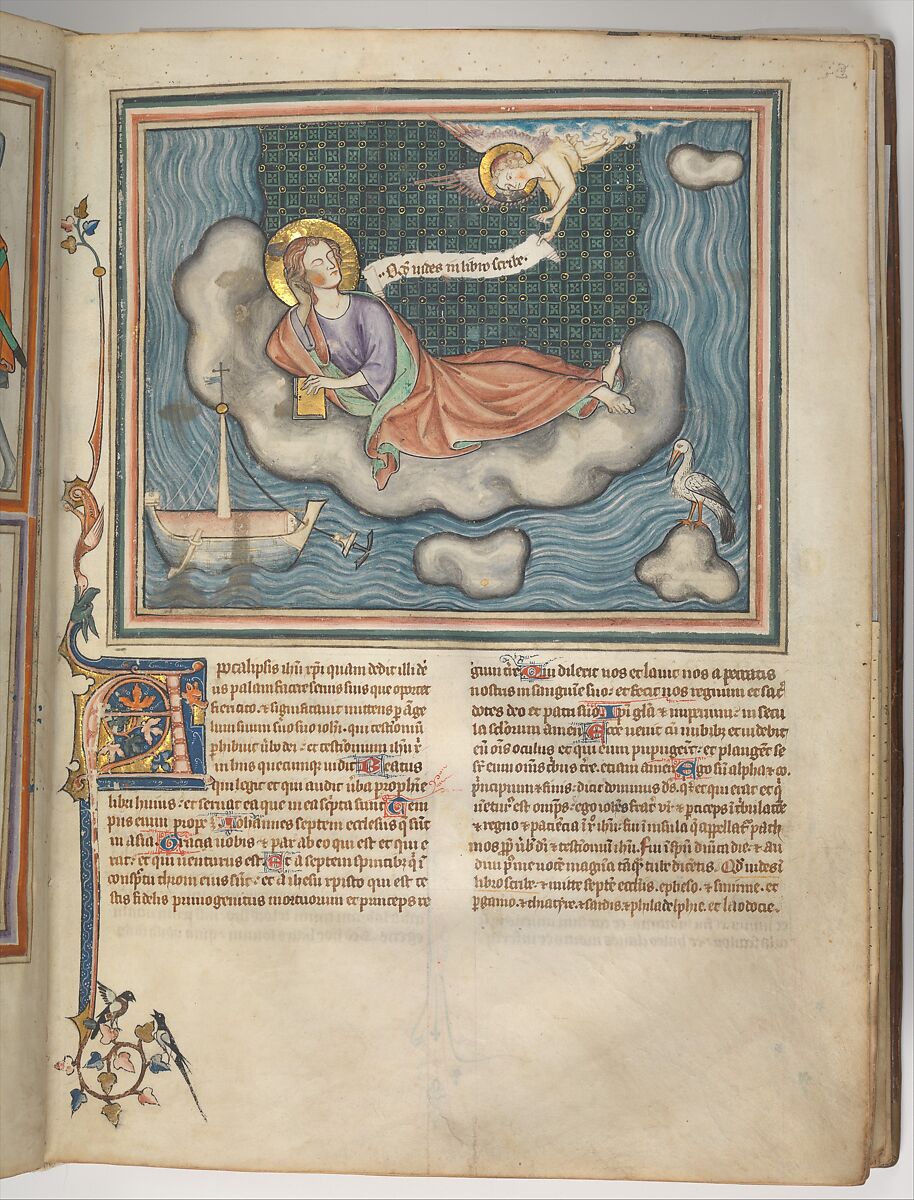 Qđ uides in libro scribe.
Apocalipsis ihū xp̄i quam dedit illi dē
us palam facere seruis suis que oportet
fieri cito · et significauit mittens p̄ āge
lum suum suo iohī · qui testimoniū
phibuit ūbo dei · et testimonium ihū x̄
in hiis quecunque uidit Beatus
qui legit et qui audit uba prophie
libri huius · et seruat ea que in ea scpta sunt Tem
pus enim prope ē Iohannes septem ecclesiis q̄ sūt
in asia. Gracia uobis · et pax ab eo qui est et qui e
rat · et qui uenturus est Et a septem spiritibz q̄ ī
conspēu throni eius sūt · et a ihesu xpisto qui est te
stis fidelis primogenitus mortuorum et princeps re
gum tr̄e Qui dilexit nos et lauit nos a peccatis
nostris in sanguīe suo · et fecit nos regnum et sac̄
dotes deo et patri suo Ip̄i glā et imperium in secu
la sclorum amen Ecce uenit cū nubibz et uidebit
eū oīs oculus et qui eum pupugert̄ · et plangēt se
sr̄ eum om̄s tribus tr̄e. etiam amen Ego sū alpha et ω.
p̄ncipium et finis · dicit dominus ds̄ · q̄ ē et qui erat et q̄
uētur̄ est om̄ps · ego iohēs frat̄ vr̄ et pticeps ī tbulatōe
et regno et pacīēcia ī x̄ ihū · fui ī insula q̄ appellat̄ path
mos pp̄ ūb̄ dī et testīonīū ihū. Fui ī sp̄u dn̄ica die · et au
diui p̄ me uocē magnā tāq̄ tube dicētis. Qđ uides ī
libro scribe · et mitte septē eccliis, epheso · et smirne · et
p̄gamo · et thiatyre · et sardis, et philadelphie, et laodocie.